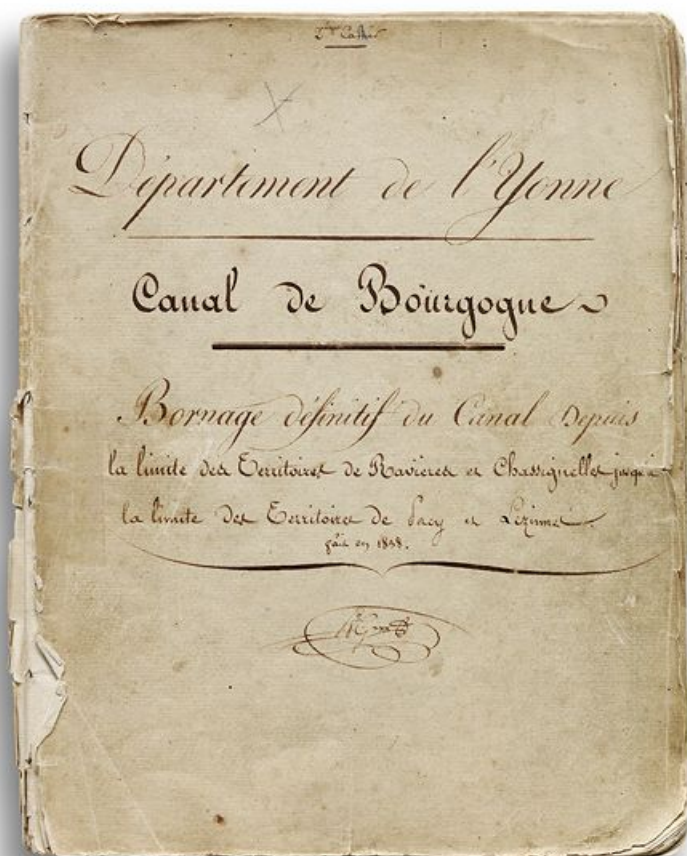 Cahier
Département de l'Yonne
Canal de Bourgogne
Bornage définitif du Canal Depuis
la limite des Territoires de Ravières et Chassignelles jusqu'à
la limite des Territoires de Pacy et Lezinnes.
fait en